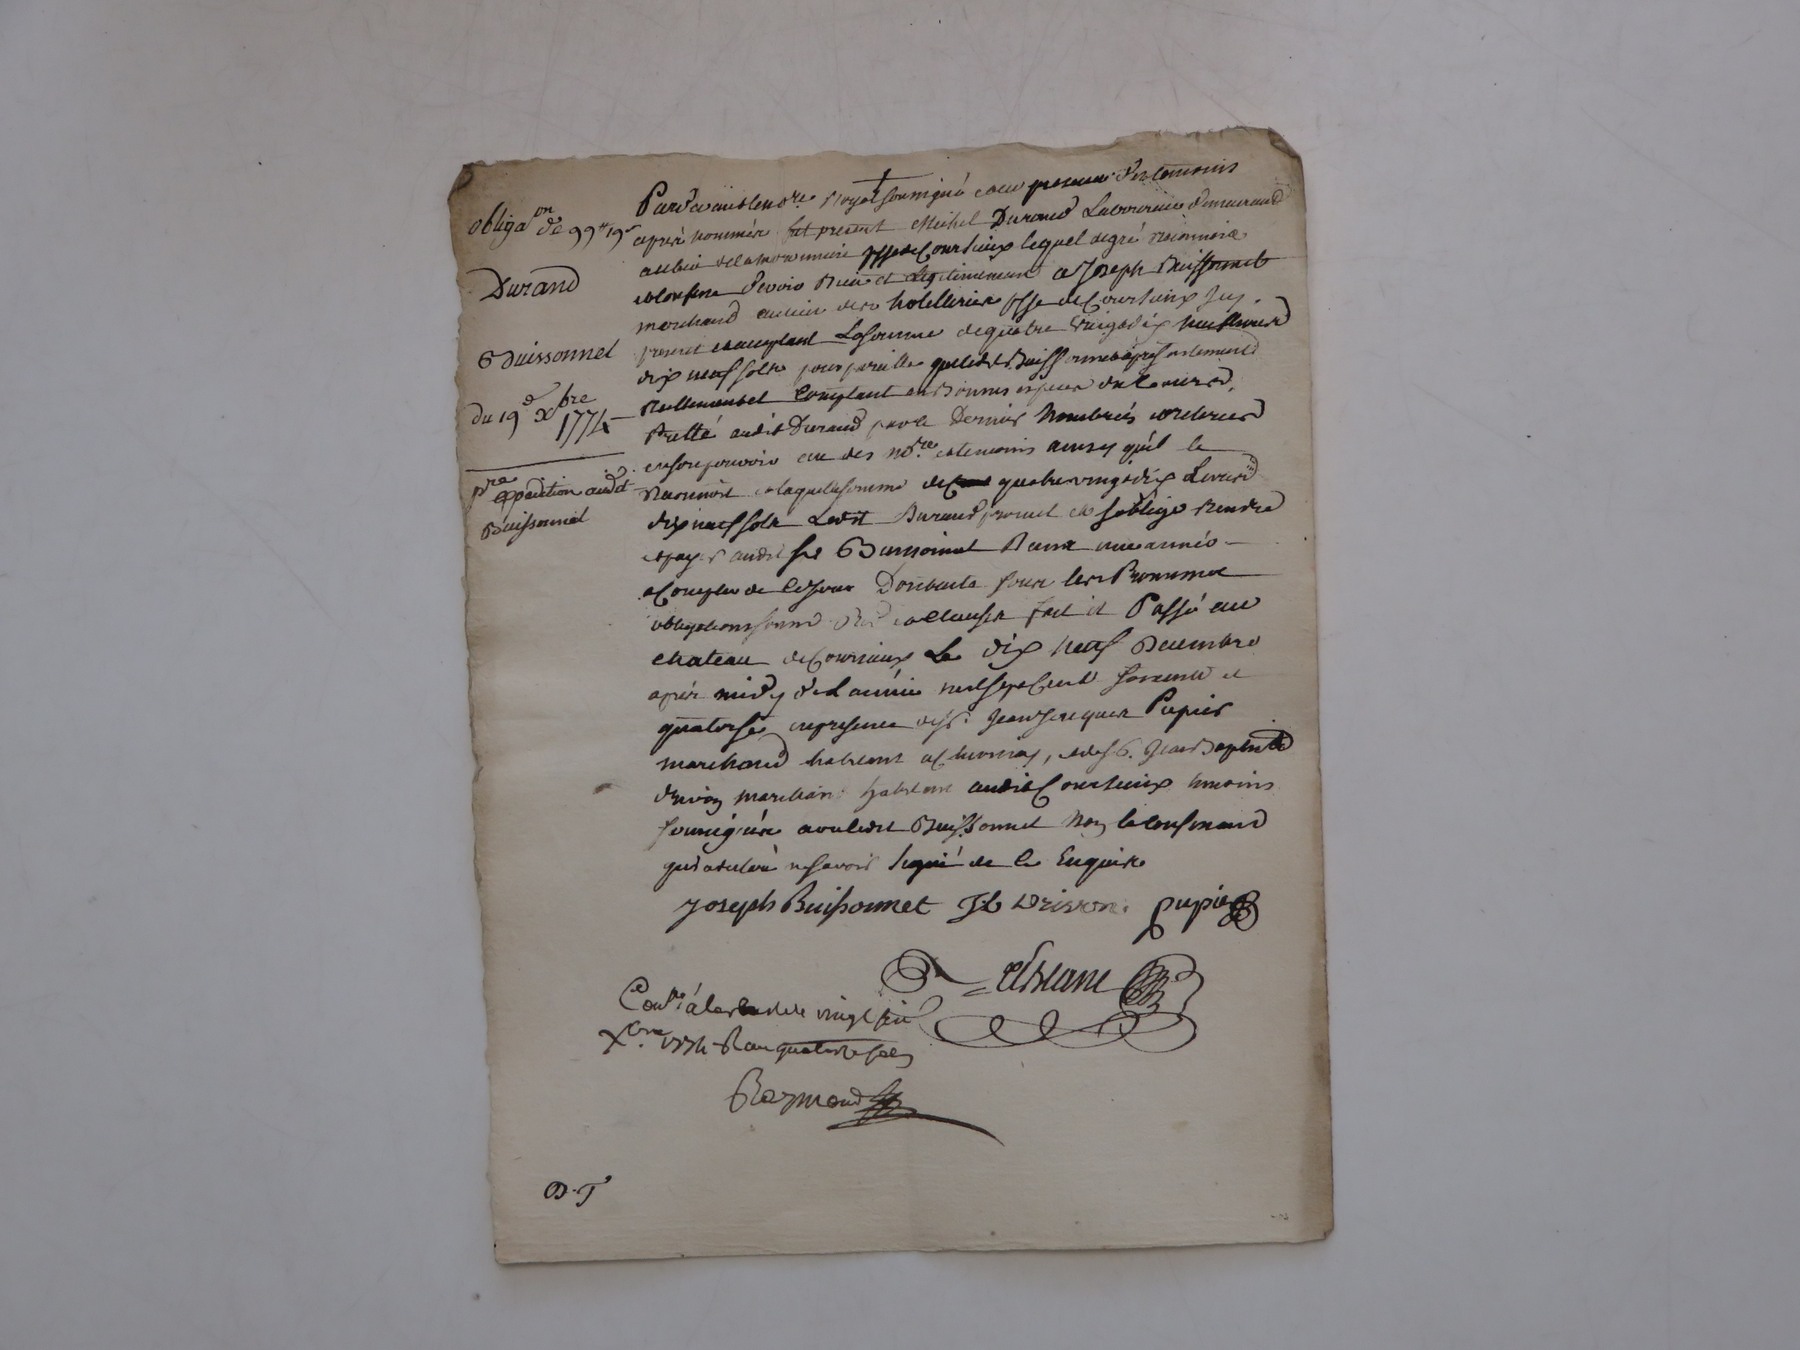 obliga^on de 99^# 19^s
Durand
Buissonnet
du 19^e X^bre
1774
p^re expedition audit
Buissonnet
Pardevant le no^re Royal soussigné et en presence des temoins
apres nommés fut present Michel Durand Laboureur demeurant
au lieu de la p^sse de Courzieux lequel de gré reconnoit
et confesse devoir bien et legitimement a Joseph Buissonnet
marchand au lieu des hotelleries p^sse de Courzieux icy
present et acceptant La somme de quatre vingt dix neuf livres
dix neuf sols pour pareille que ledit Buissonnet a presentement
Reellement et Comptant en bonnes especes de Cours
Prette audit Durand par le dernier Nombrés et retirés
en son pouvoir au vu des no^re et temoins ainsy qu'il le
Reconnoit et laquelle somme de quatre vingt dix Livres
dix neuf sols Ledit Durand promet et s'oblige Rendre
et payer audit s^r Buissonnet Dans une année
a Compter de Ce jour Dont acte sous les Promesses
obligations et clauses fait et Passé au
chateau de Courzieux Le dix neuf Decembre
après midy de L'année mil sept Cent soixante et
quatorse en presence de s^r Jean Jacques Pupier
marchand habitant a, et de s^r Jean Baptiste
marchand habitant audit Courzieux temoins
soussignés avec ledit Buissonnet Non le Confessant
qui a declaré ne savoir signé de Ce Enquis
Joseph Buissonnet JB Pupier
Con^lé a vingt six
X^bre 1774 R au quatorse sols
Raymond
D.T